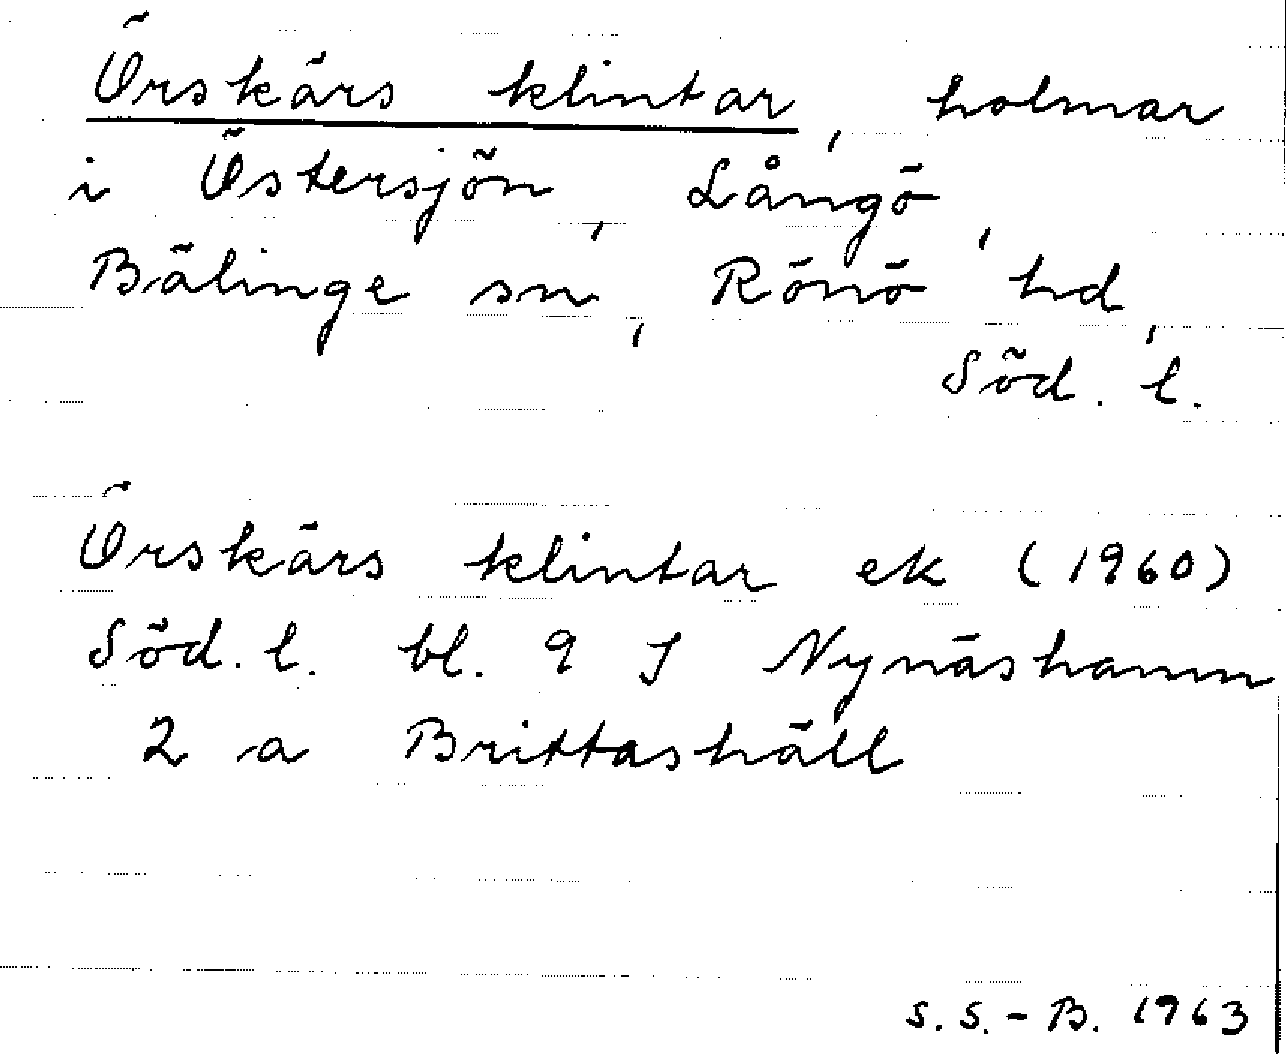 Örskärs klintar, holmar
i Östersjön, Långö,
Bälinge sn, Rönö hd,
Söd. l.
Örskärs klintar ek (1960)
Söd. l. bl. 9 I Nynäshamn
2 a Brittashäll
S. S.-B. 1963